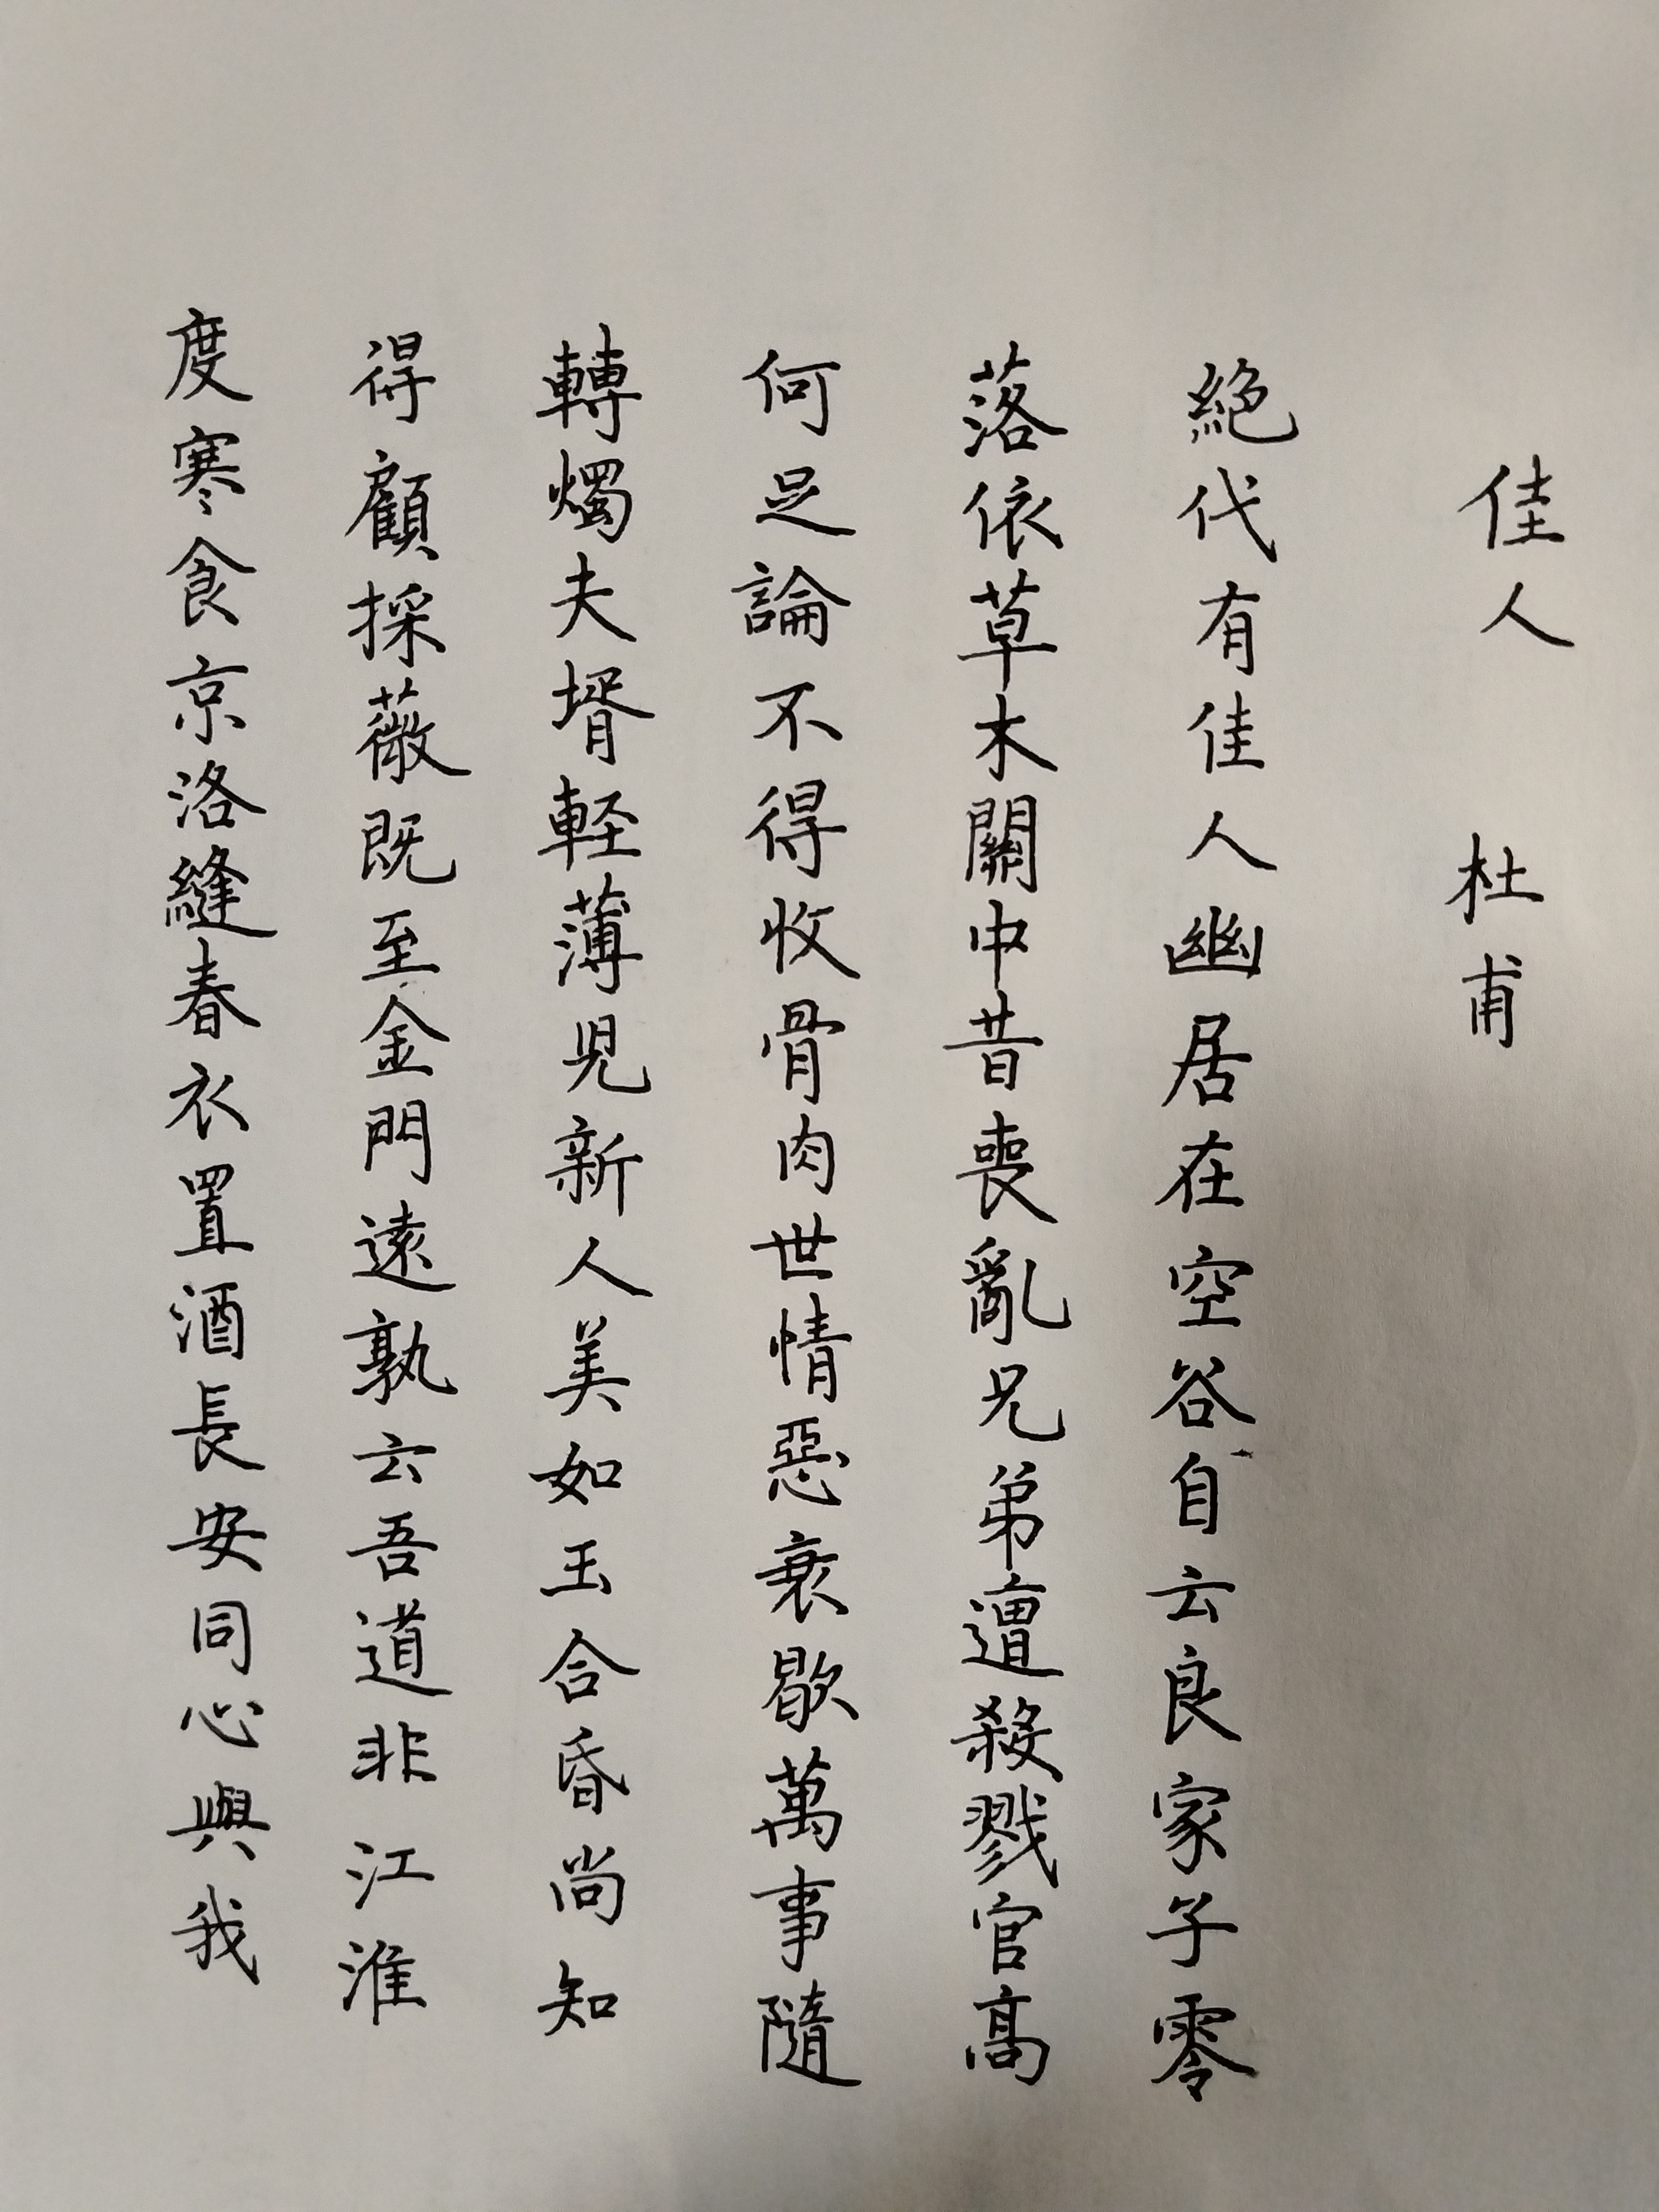 佳人 杜甫
絕代有佳人幽居在空谷自云良家子零
落依草木關中昔喪亂兄弟遭殺戮官高
何足論不得收骨肉世情惡衰歇萬事隨
轉燭夫壻輕薄児新人美如玉合昏尚知
得顧採薇既至金門遠孰云吾道非江淮
度寒食京洛縫春衣置酒長安同心與我